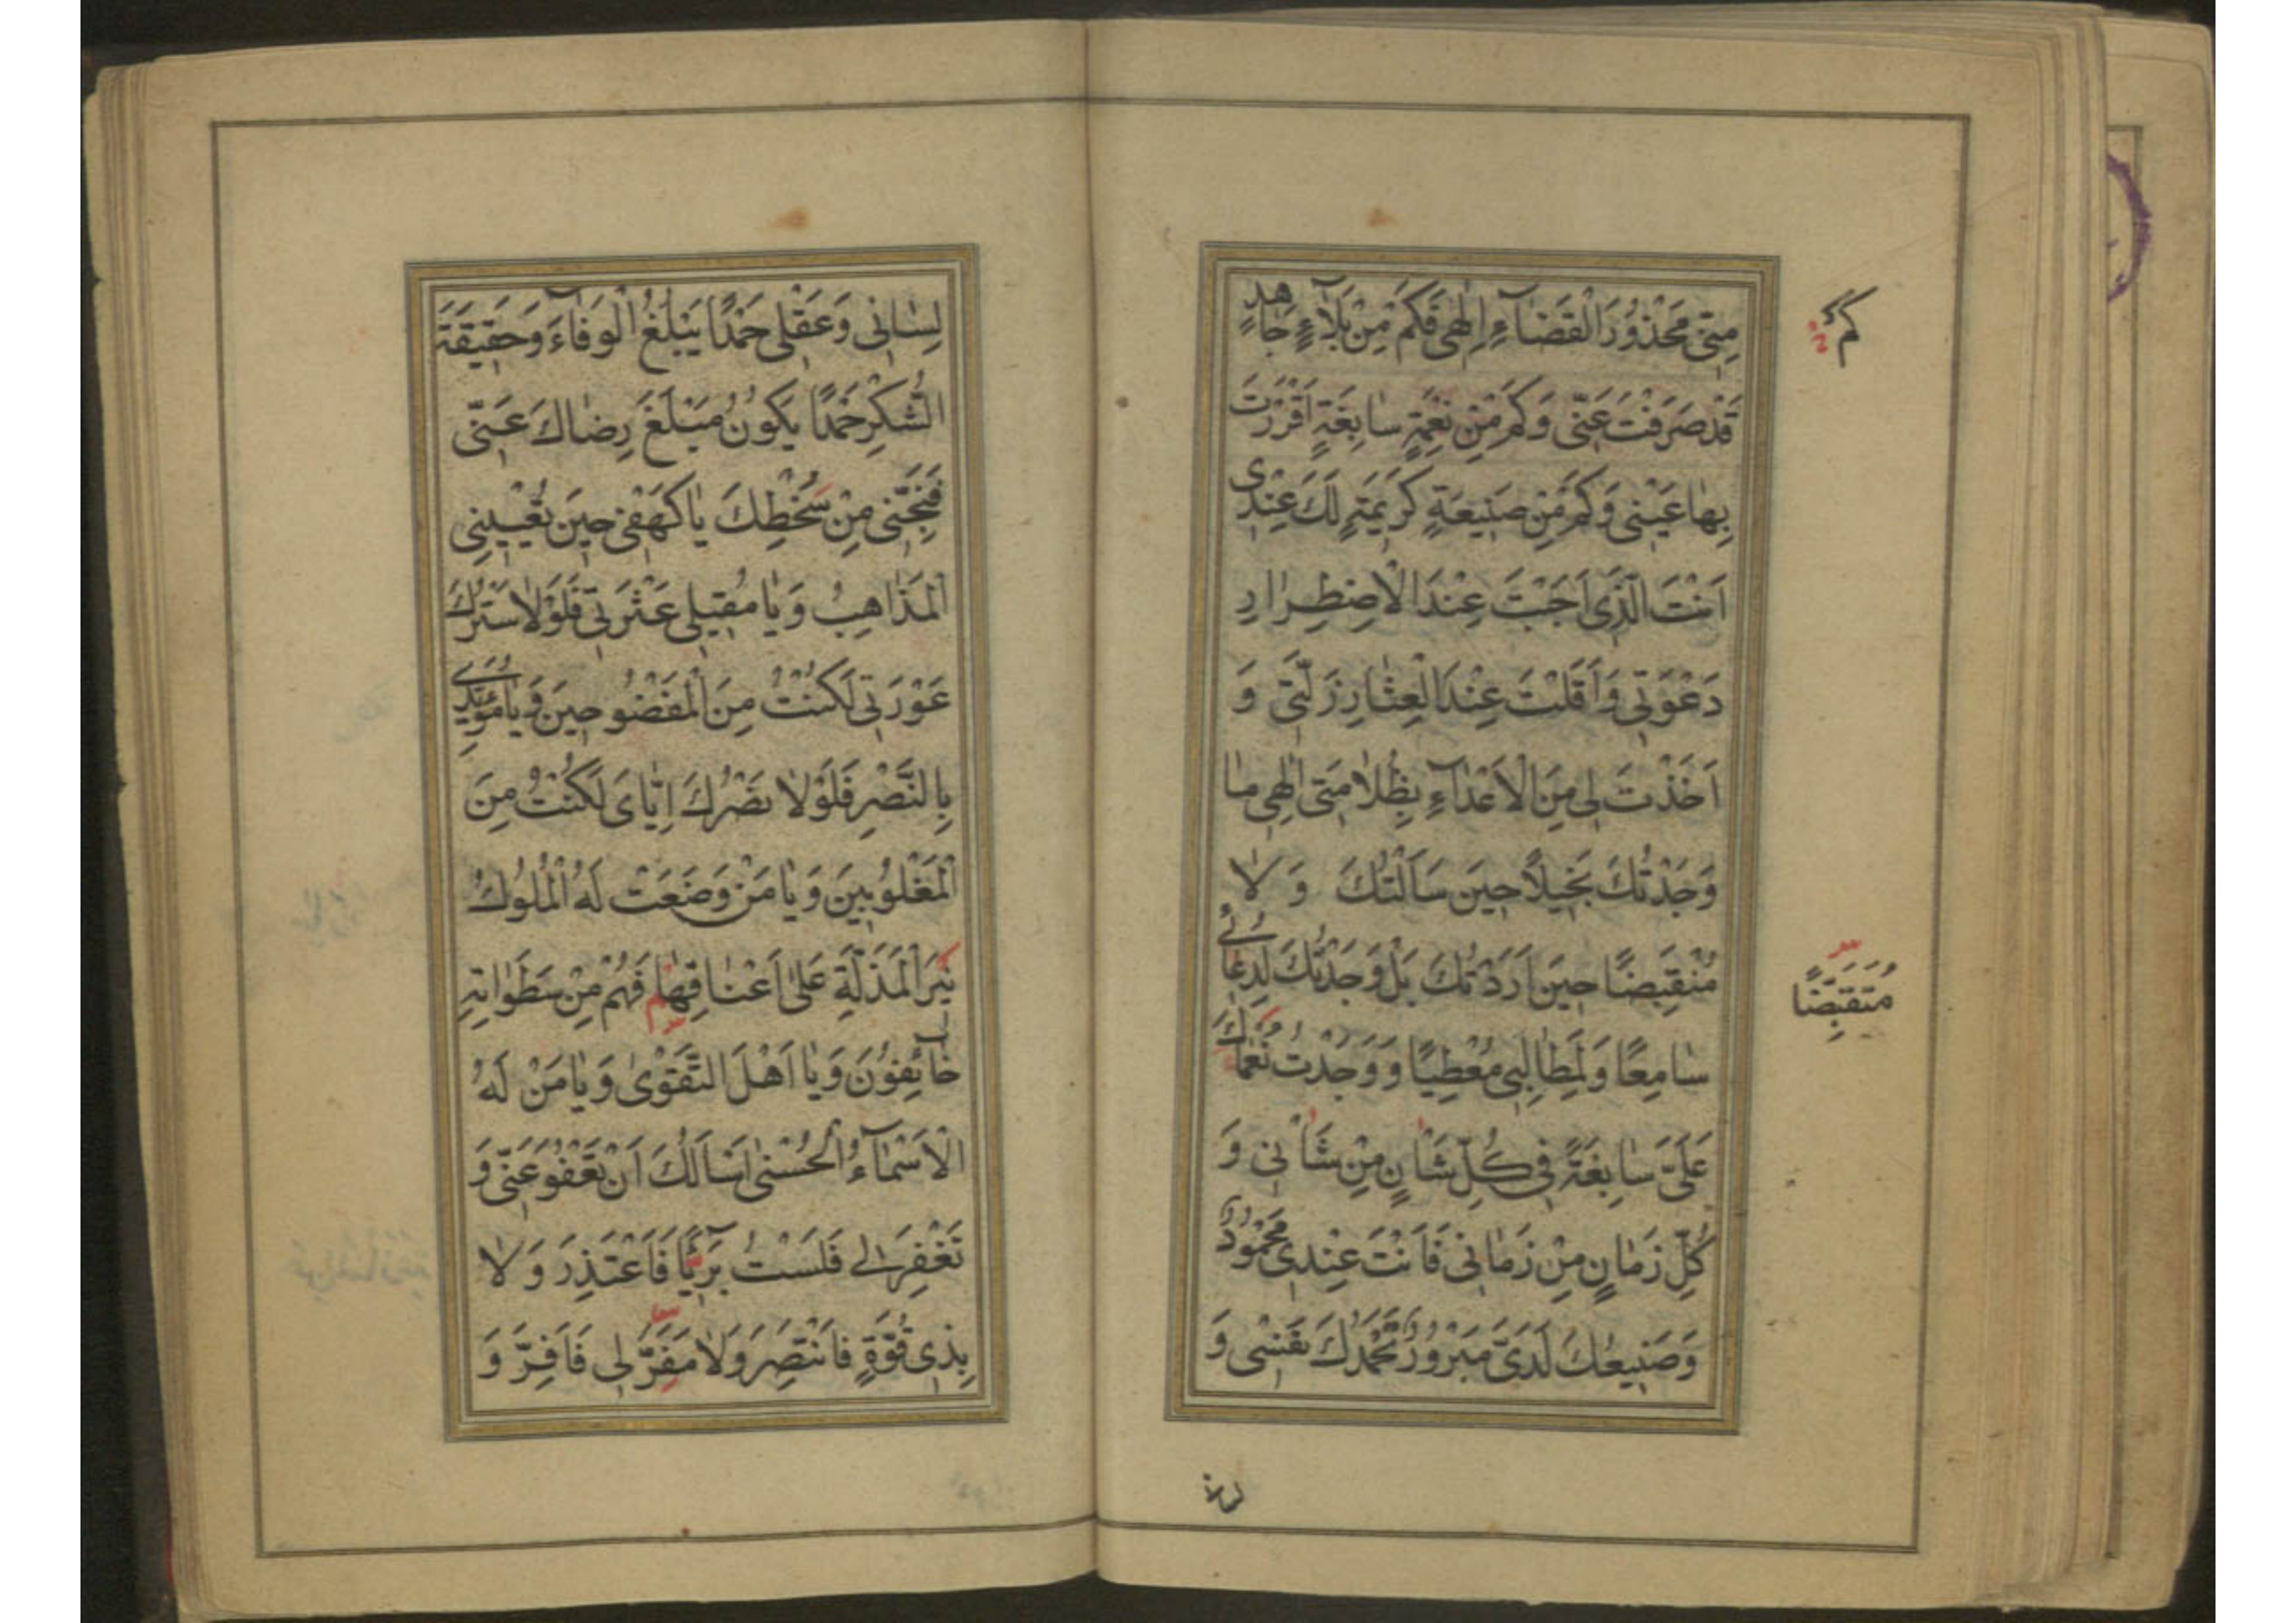 مِنّى مَحْذُورَ الْقَضَآءِ اِلٰهى فَكَمْ مِنْ بَلَآءٍ جَاهِدٍ
قَدْ صَرَفْتَ عَنّى وَكَمْ مِنْ نِعْمَةٍ سٰابِغَةٍ اَقْرَرْتَ
بِهٰا عَيْنى وَكَمْ مِنْ صَنيعَةٍ كَريمَةٍ لَكَ عِنْدى
اَنْتَ الَّذى اَجَبْتَ عِنْدَ الْاِضْطِرٰارِ
دَعْوَتى وَاَقَلْتَ عِنْدَ الْعِثٰارِ زَلَّتى وَ
اَخَذْتَ لى مِنَ الْاَعْدٰآءِ بِظُلٰامَتى اِلٰهى مٰا
وَجَدْتُكَ بَخيلًا حينَ سَاَلْتُكَ وَ لٰا
مُنْقَبِضًا حينَ اَرَدْتُكَ بَلْ وَجَدْتُكَ لِدُعٰائى
سٰامِعًا وَلِمَطٰالِبى مُعْطِيًا وَ وَجَدْتُ نُعْمٰاكَ
عَلَىَّ سٰابِغَةً فى كُلِّ شَاْنٍ مِنْ شَاْنى وَ
كُلِّ زَمٰانٍ مِنْ زَمٰانى فَاَنْتَ عِنْدى مَحْمُودٌ
وَصَنيعُكَ لَدَىَّ مَبْرُورٌ تَحْمَدُكَ نَفْسى وَ
كم
مُتَقَبِّضًا
لِسٰانى وَعَقْلى حَمْدًا يَبْلُغُ الْوَفٰآءَ وَحَقيقَةَ
الشُّكْرِ حَمْدًا يَكُونُ مَبْلَغَ رِضٰاكَ عَنّى
فَنَجِّنى مِنْ سَخَطِكَ يٰا كَهْفى حينَ تُعْيينِى
الْمَذٰاهِبُ وَ يٰا مُقيلى عَثْرَتى فَلَوْلٰا سَتْرُكَ
عَوْرَتى لَكُنْتُ مِنَ الْمَفْضُوحينَ وَ يٰا مُؤَيِّدى
بِالنَّصْرِ فَلَوْلٰا نَصْرُكَ اِيّٰاىَ لَكُنْتُ مِنَ
الْمَغْلُوبينَ وَ يٰا مَنْ وَضَعَتْ لَهُ الْمُلُوكُ
نيرَ الْمَذَلَّةِ عَلٰى اَعْنٰاقِهٰا فَهُمْ مِنْ سَطَوٰاتِهِ
خٰآئِفُونَ وَ يٰا اَهْلَ التَّقْوٰى وَ يٰا مَنْ لَهُ
الْاَسْمٰآءُ الْحُسْنٰى اَسْاَلُكَ اَنْ تَعْفُوَ عَنّى وَ
تَغْفِرَ لى فَلَسْتُ بَرٓيئًا فَاَعْتَذِرَ وَ لٰا
بِذى قُوَّةٍ فَاَنْتَصِرَ وَلٰا مَفَرَّ لى فَاَفِرَّ وَ